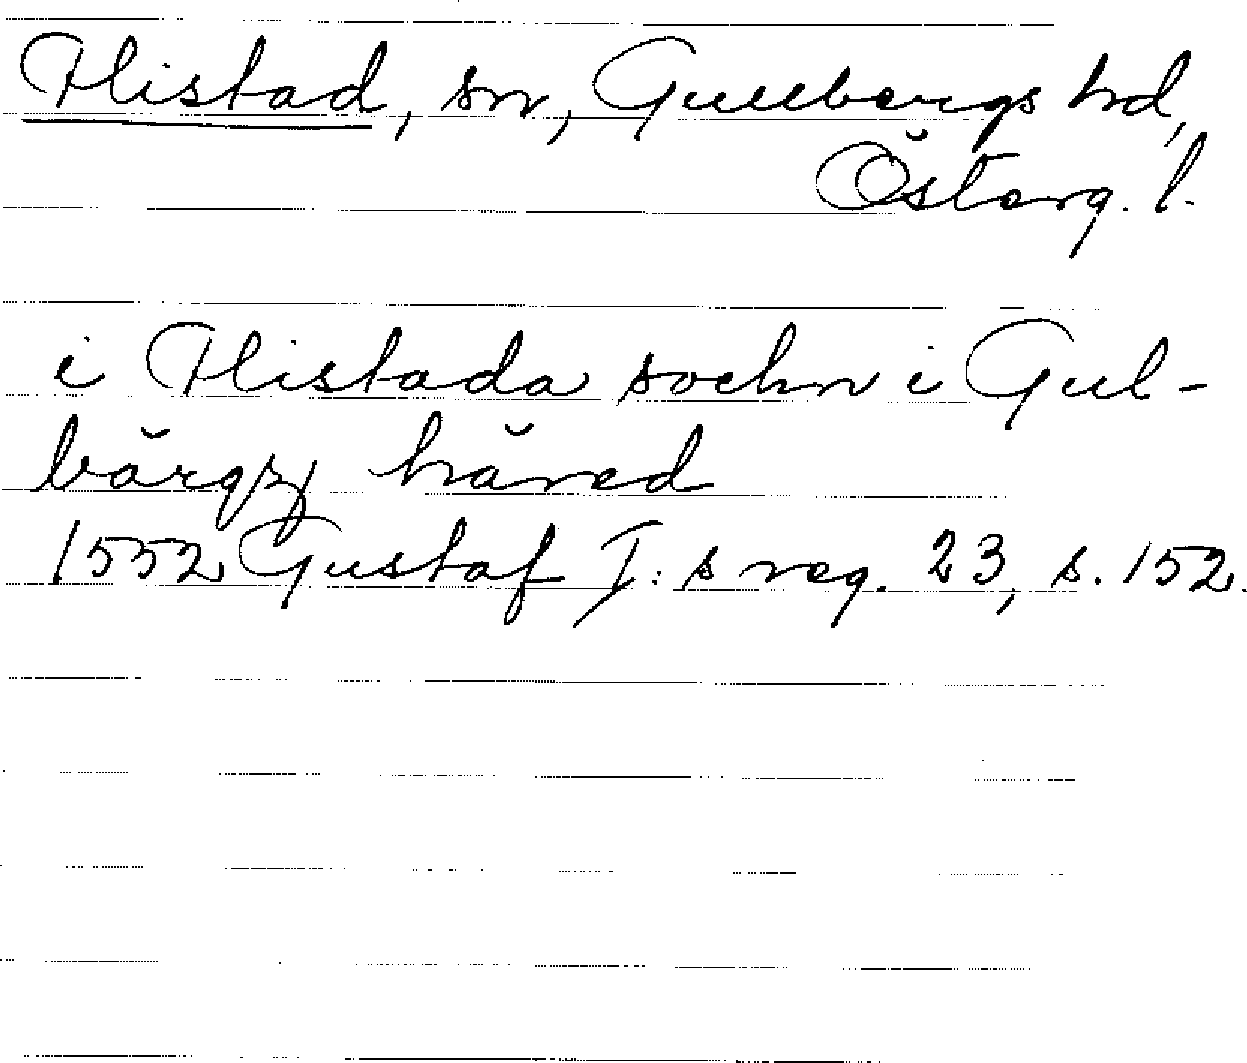 Flistad, sn, Gullbergs hd,
Österg. l.
i Flistada sochn i Gul-
bärgz häred
1552 Gustaf I: s reg. 23, s. 152.